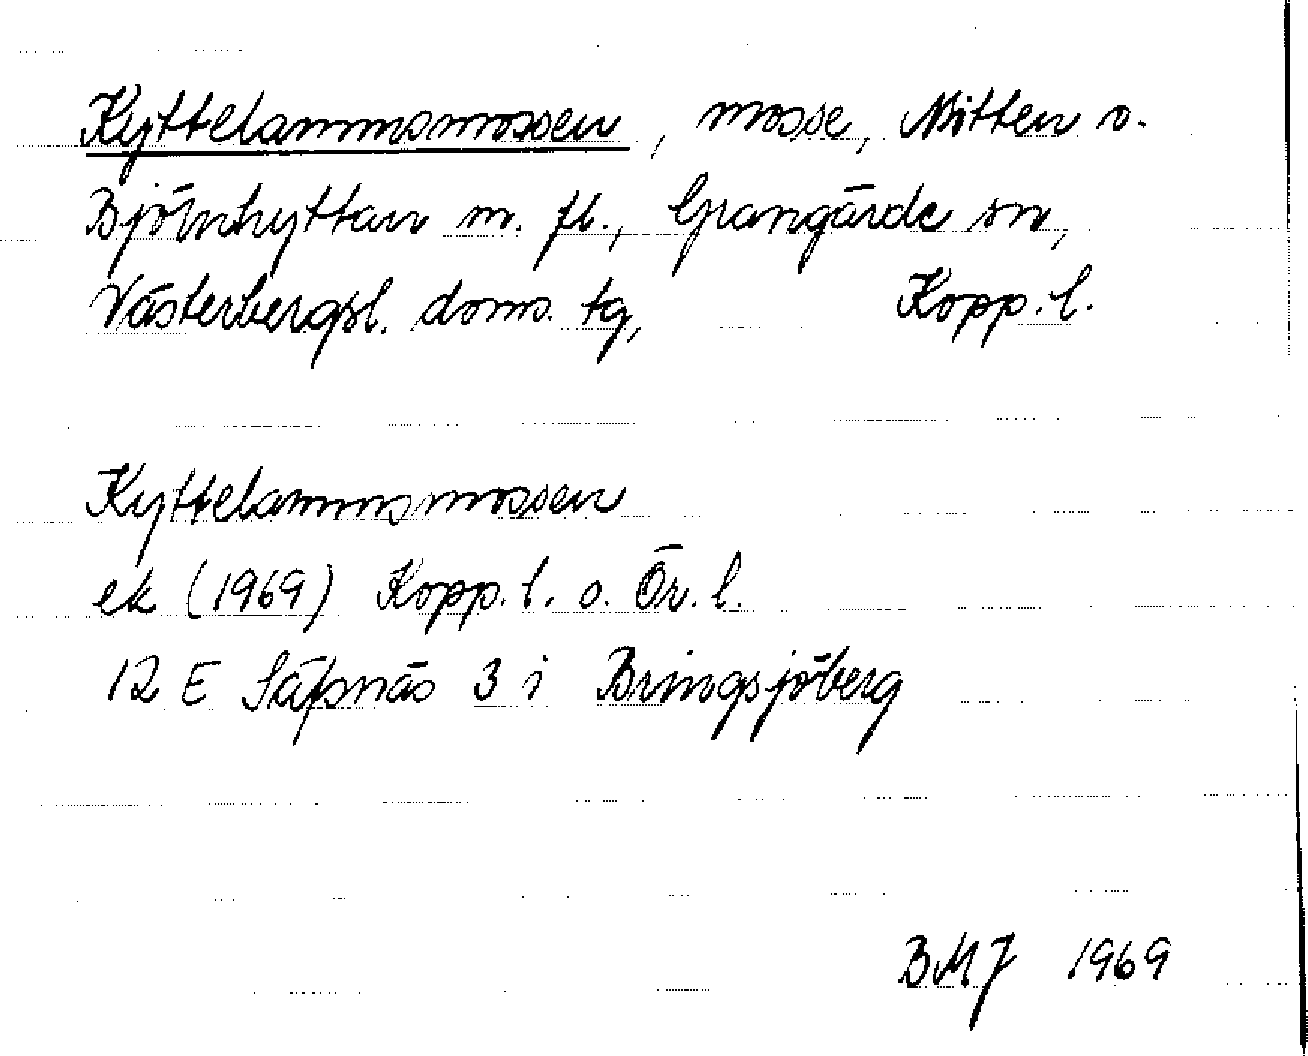 Kyttelammsmossen, mosse, Mitten o.
Björnhyttan m. fl., Grangärde sn,
Västerbergsl. doms. tg, Kopp. l.
Kyttelammsmossen
ek (1969) Kopp. l. o. Ör. l.
12 E Säfsnäs 3 i Bringsjöberg
BMJ 1969